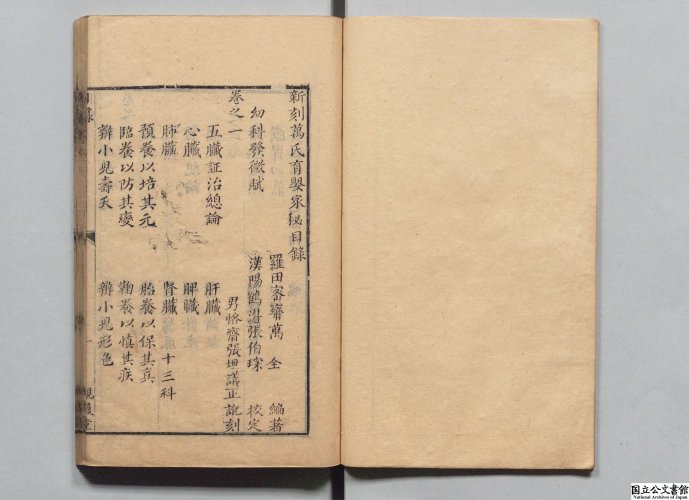 新刻萬氏育嬰家秘目錄
羅田密齋萬 全 編著
幼科發微賦 漢陽鶴渚張伯琮 校定
男恪齋張坦議正 訛刻
卷之一
五臟証治總論 肝臟
心臟 脾臟
肺臟 腎臟 十三科
預養以培其元 胎養以保其真
臨養以防其變 鞠養以慎其疾
辨小兒壽夭 辨小兒形色
目錄
視履堂
国立公文書館
National Archives of Japan